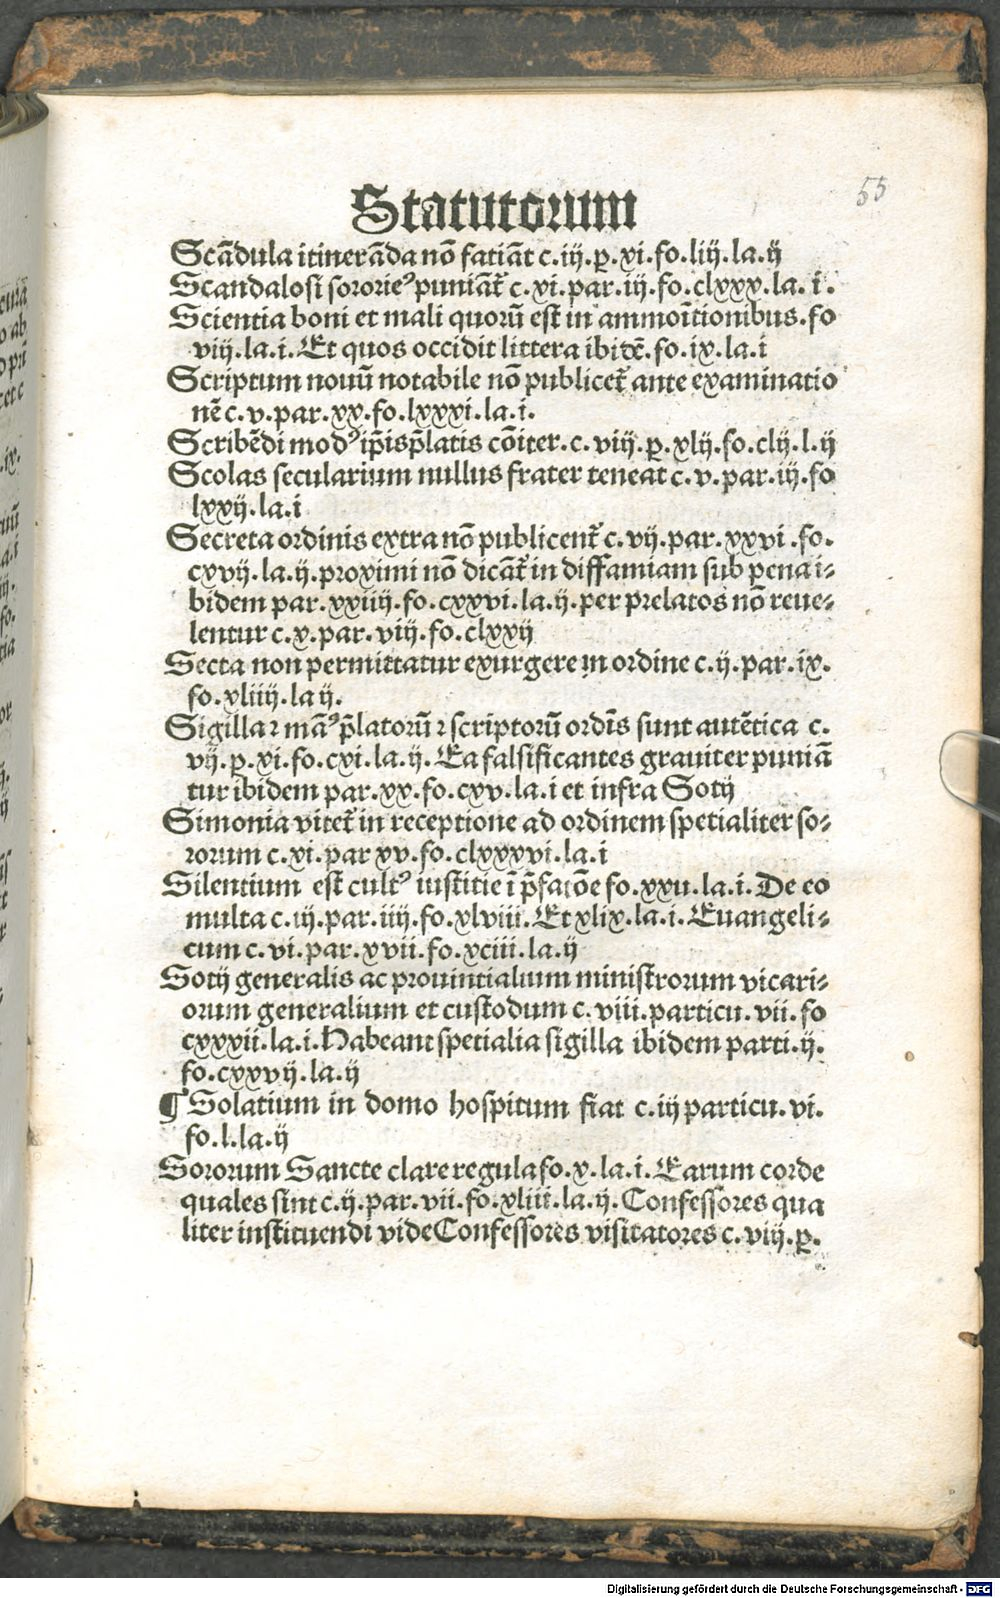 55
Statutorum
Scādula itinerāda nō fatiāt c. iij. p. xi. fo. liij. la. ij
Scandalosi sororieꝰ puniāt᷑ c. xi. par. iij. fo. clxxx. la. i.
Scientia boni et mali quorū est in ammoītionibus. fo
viij. la. i. Et quos occidit littera ibidē. fo. ix. la. i
Scriptum nouū notabile nō publicet᷑ ante examinatio
nē c. v. par. xx. fo. lxxxi. la. i.
Scribēdi modꝰ ip̄is p̄latis cōiter. c. viij. ꝑ. xlij. fo. clij. l. ij
Scolas secularium nullus frater teneat c. v. par. iij. fo
lxxij. la. i
Secreta ordinis extra nō publicent᷑ c. vij. par. xxvi. fo.
cxvij. la. ij. proximi nō dicāt᷑ in diffamiam sub pena i-
bidem par. xxiiij. fo. cxxvi. la. ij. per prelatos nō reue-
lentur c. x. par. viij. fo. clxxij
Secta non permittatur exurgere in ordine c. ij. par. ix.
fo. xliiij. la ij.
Sigilla ⁊ māꝰ p̄latorū ⁊ scriptorū ordīs sunt autētica c.
vij. ꝑ. xi. fo. cxi. la. ij. Ea falsificantes grauiter puniā
tur ibidem par. xx. fo. cxv. la. i et infra Sotij
Simonia vitet᷑ in receptione ad ordinem spetialiter so-
rorum c. xi. par xv. fo. clxxxvi. la. i
Silentium est cultꝰ iustitie ī p̄fatōe fo. xxii. la. i. De eo
multa c. iij. par. iiij. fo. xlviii. Et xlix. la. i. Euangeli-
cum c. vi. par. xvii. fo. xciii. la. ij
Sotij generalis ac prouintialium ministrorum vicari-
orum generalium et custodum c. viii. particu. vii. fo
cxxxii. la. i. Habeant spetialia sigilla ibidem parti. ij.
fo. cxxvij. la. ij
¶ Solatium in domo hospitum fiat c. iij particu. vi.
fo. l. la. ij
Sororum Sancte clare regula fo. x. la. i. Earum corde
quales sint c. ij. par. vii. fo. xliii. la. ij. Confessores qua
liter instituendi vide Confessores visitatores c. viij. ꝑ.
Digitalisierung gefördert durch die Deutsche Forschungsgemeinschaft - DFG